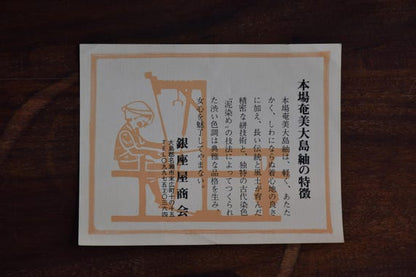 本場奄美大島紬の特徴
本場奄美大島紬は、軽く、あたた
かく、しわにならぬ着心地の良さ
に加え、長い伝統と風土が育んだ
精密な絣技術と、独特の古代染色
"泥染め"の技法によってつくられ
た渋い色調は典雅な品格を生み、
女心を魅了してやまない。
銀座屋商会